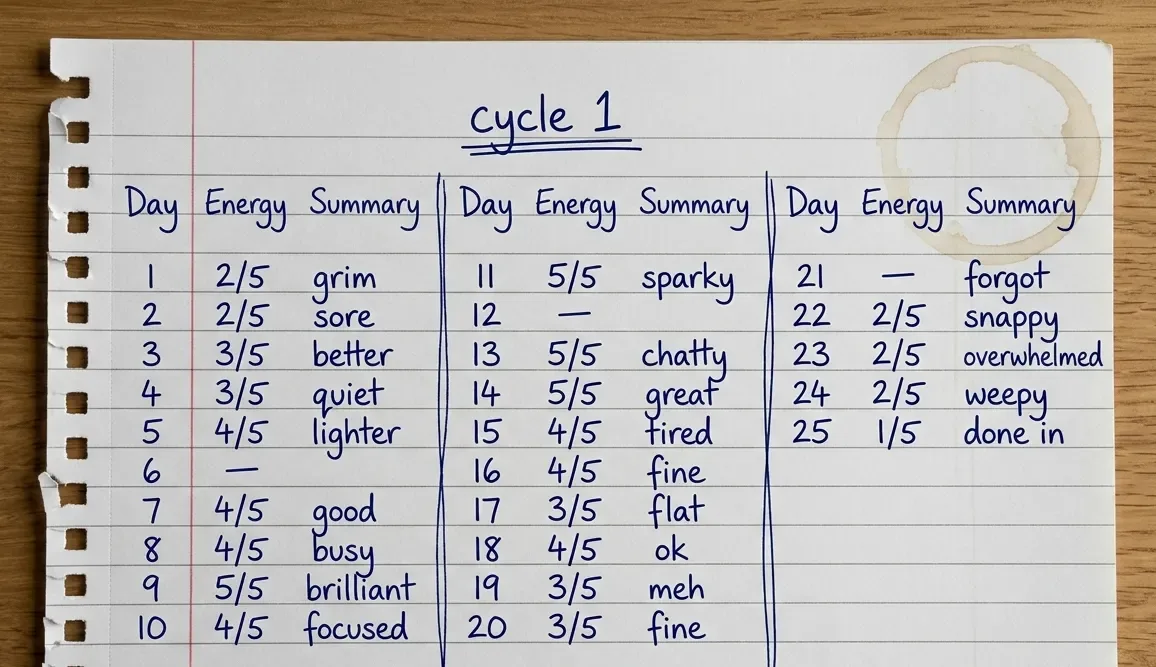 cycle 1
Day Energy Summary Day Energy Summary Day Energy Summary
1 2/5 grim 11 5/5 sparky 21 — forgot
2 2/5 sore 12 — 22 2/5 snappy
3 3/5 better 13 5/5 chatty 23 2/5 overwhelmed
4 3/5 quiet 14 5/5 great 24 2/5 weepy
5 4/5 lighter 15 4/5 tired 25 1/5 done in
6 — 16 4/5 fine
7 4/5 good 17 3/5 flat
8 4/5 busy 18 4/5 ok
9 5/5 brilliant 19 3/5 meh
10 4/5 focused 20 3/5 fine